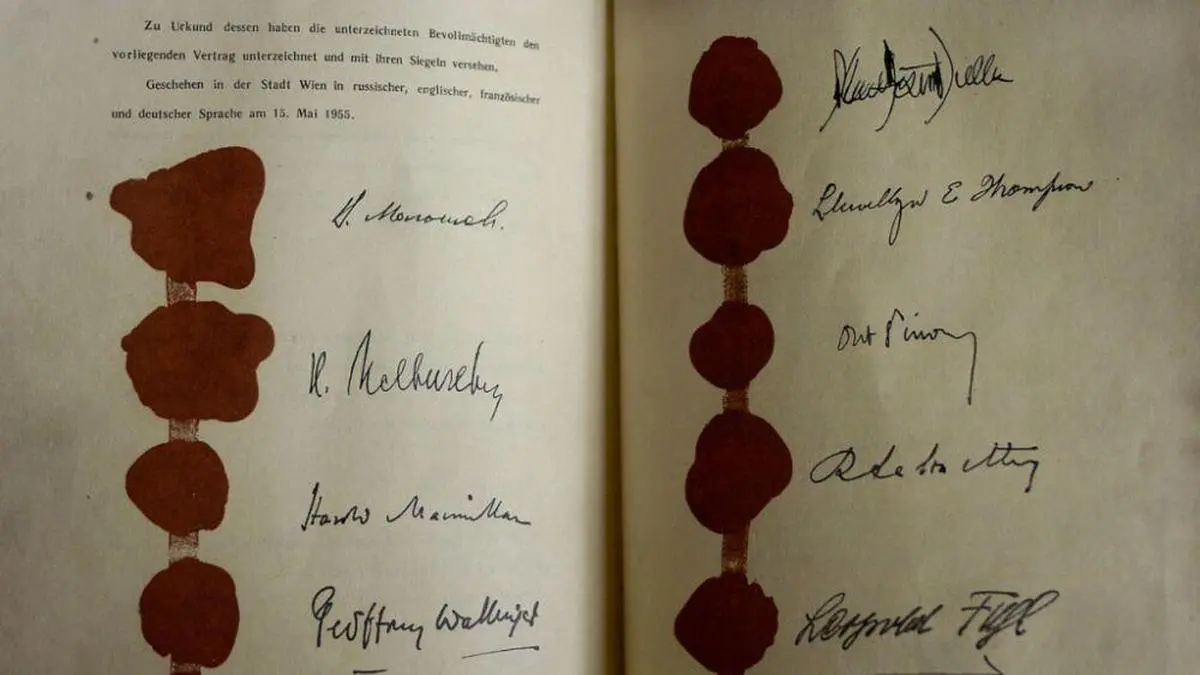 Zu Urkund dessen haben die unterzeichneten Bevollmächtigten den
vorliegenden Vertrag unterzeichnet und mit ihren Siegeln versehen.
Geschehen in der Stadt Wien in russischer, englischer, französischer
und deutscher Sprache am 15. Mai 1955.
Harold Macmillan
Geoffrey Wallinger
Llewellyn E Thompson
Leopold Figl